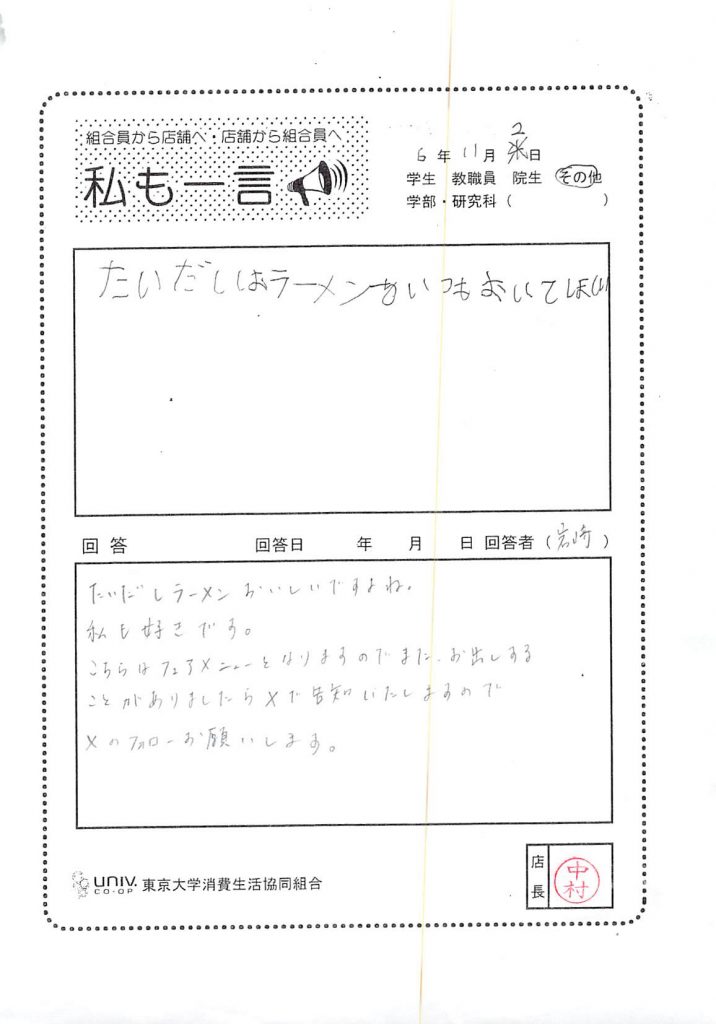 組合員から店舗へ・店舗から組合員へ
私も一言
6年11月2日
学生 教職員 院生 その他
学部・研究科( )
たいだししおラーメンをいつもおいてほしい
回答 回答日 年 月 日 回答者(岩崎)
たいだしラーメンおいしいですよね。
私も好きです。
こちらはフェアメニューとなりますのでまた、お出しする
ことがありましたらXで告知いたしますので
Xのフォローお願いします。
UNIV. CO-OP 東京大学消費生活協同組合
店長 中村